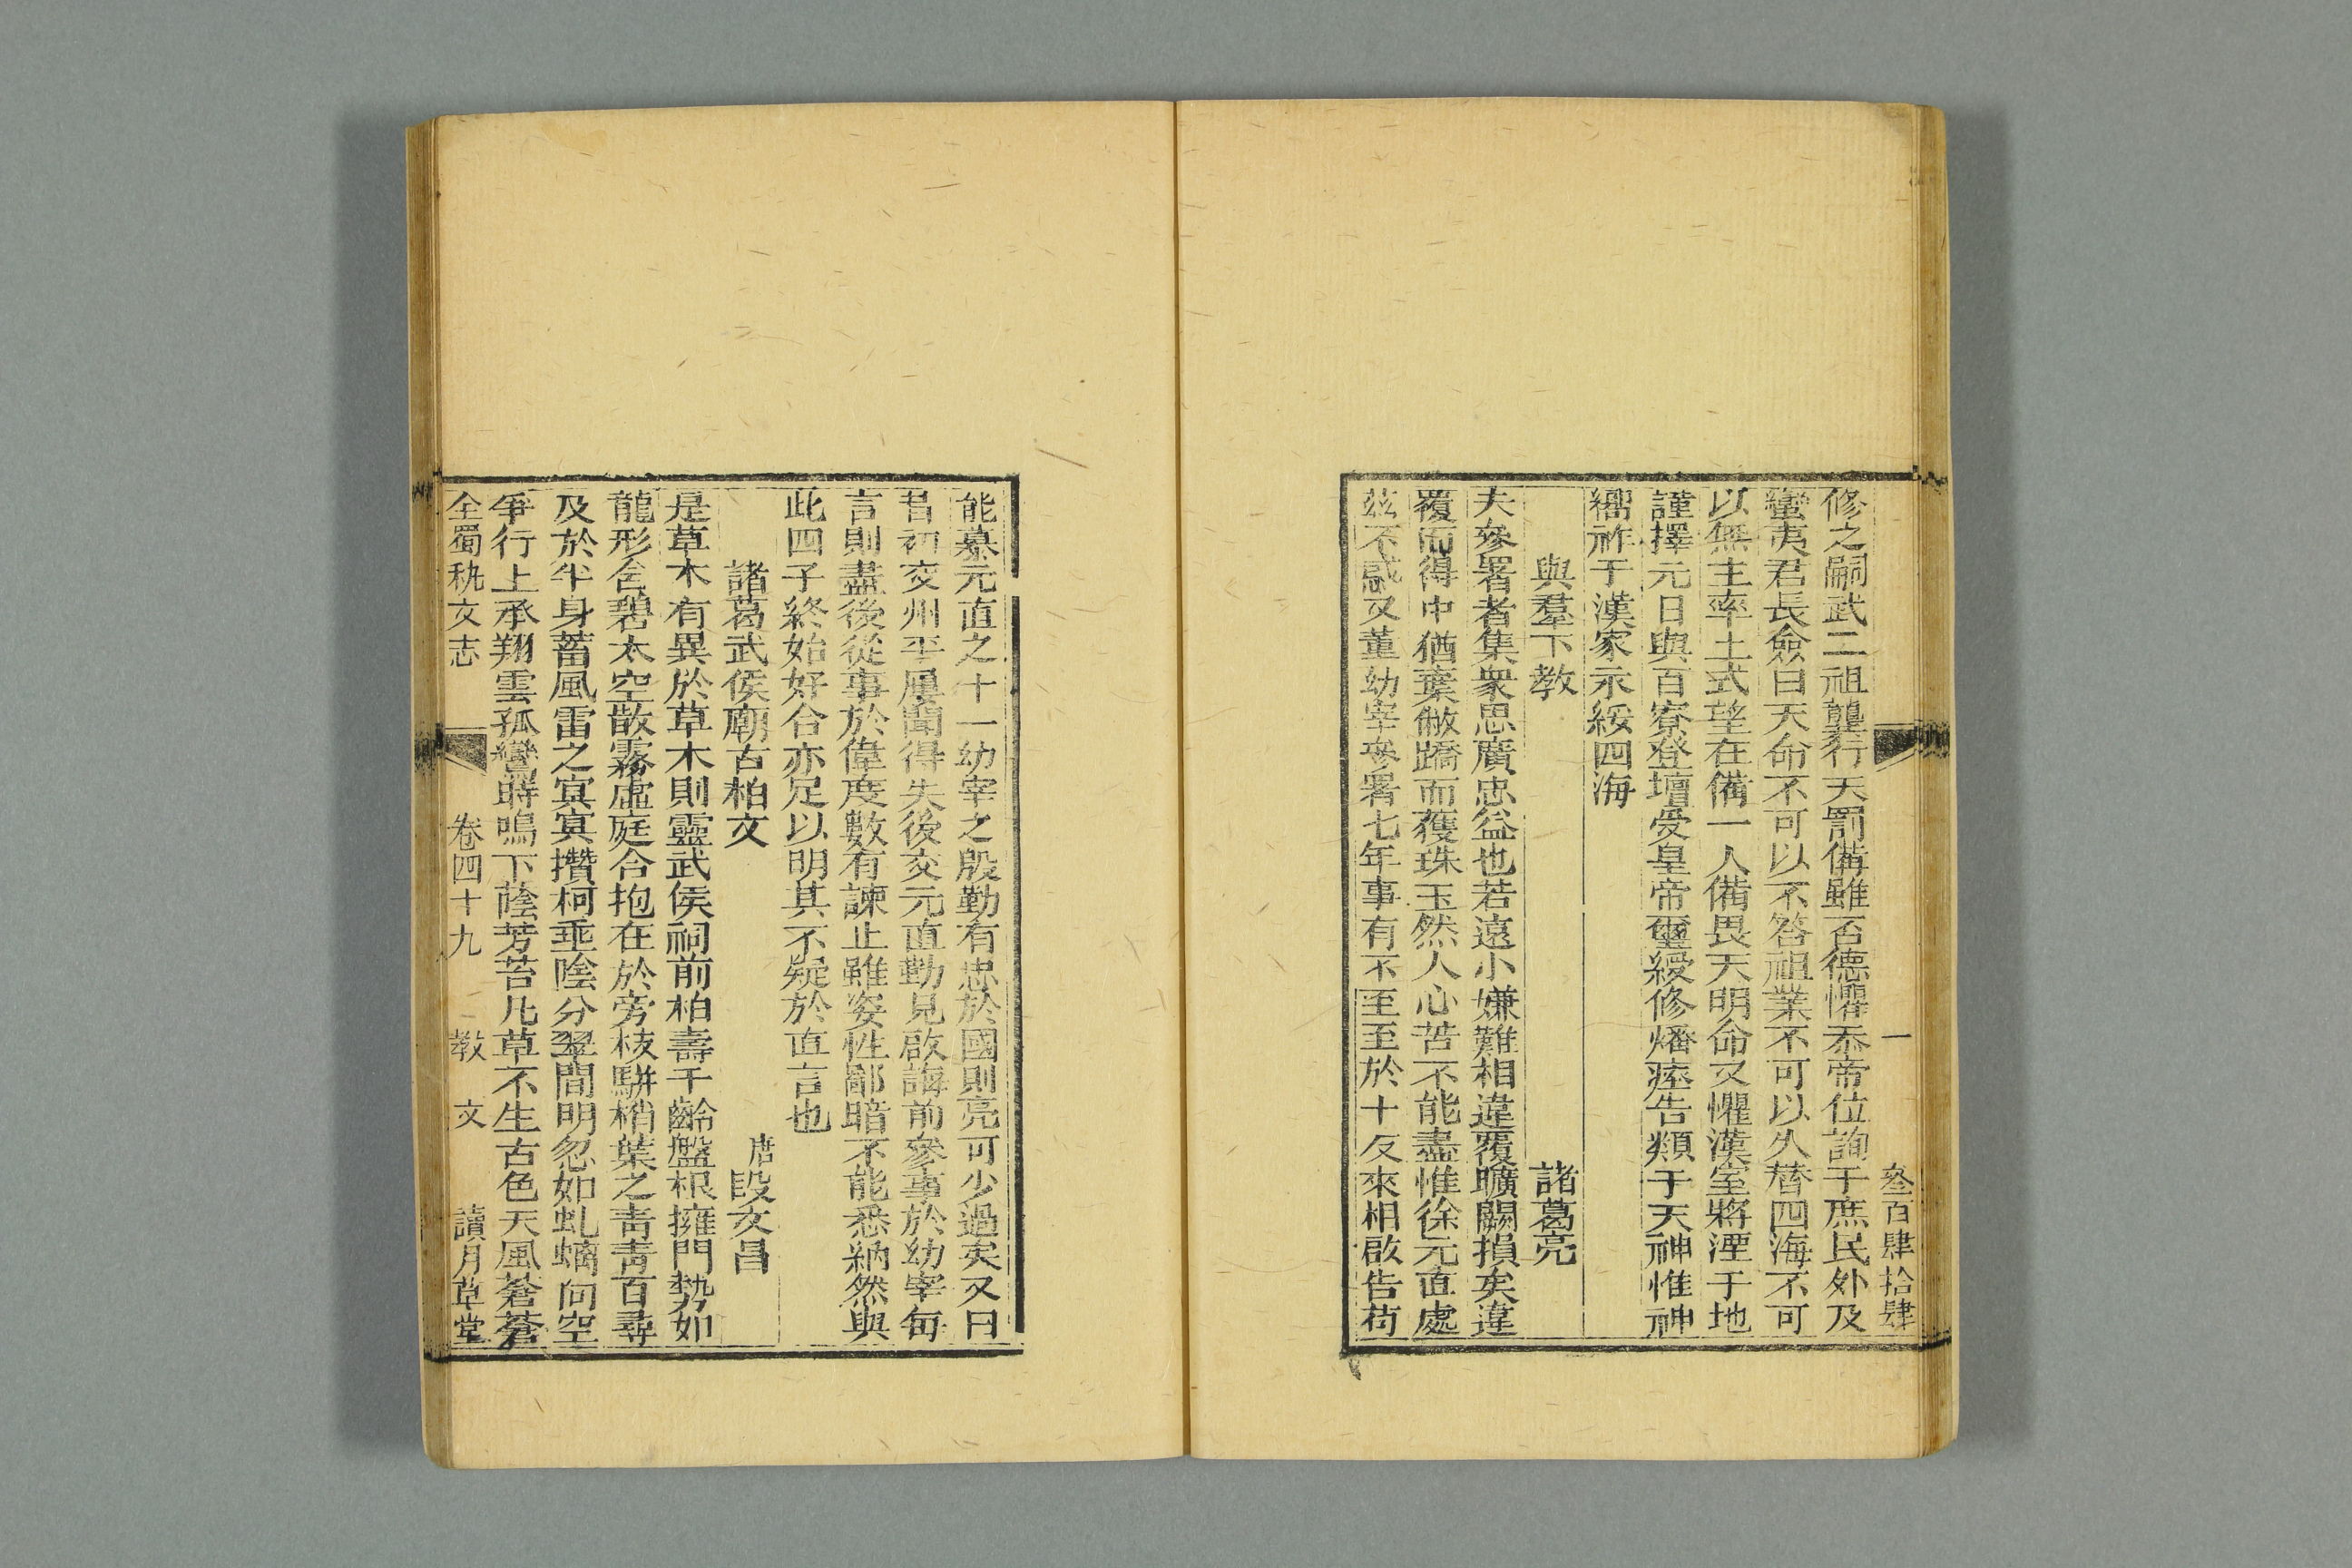 一　叁百肆拾肆
修之嗣武二祖龔行天罰備雖否德懼忝帝位詢于庶民外及
蠻夷君長僉曰天命不可以不答祖業不可以久替四海不可
以無主率土式望在備一人備畏天明命又懼漢室將湮于地
謹擇元日與百寮登壇受皇帝璽綬修燔瘞告類于天神惟神
嚮祚于漢家示綏四海
與羣下教　諸葛亮
夫參署者集衆思廣忠益也若遠小嫌難相違覆曠闕損矣違
覆而得中猶棄敝蹻而獲珠玉然人心苦不能盡惟徐元直處
茲不惑又董幼宰參署七年事有不至至於十反來相啟告苟
能慕元直之十一幼宰之殷勤有忠於國則亮可少過矣又曰
昔初交州平屢聞得失後交元直勤見啟誨前參事於幼宰每
言則盡後從事於偉度數有諫止雖姿性鄙暗不能悉納然與
此四子終始好合亦足以明其不疑於直言也
諸葛武侯廟古柏文　唐段文昌
是草木有異於草木則靈武侯祠前柏壽千齡盤根擁門勢如
龍形含碧太空散霧虛庭合抱在於旁枝駢梢葉之靑靑百尋
及於半身蓄風雷之冥冥攢柯垂陰分翠間明忽如虬螭向空
爭行上承翔雲孤鸞時鳴下蔭芳苔凡草不生古色天風蒼蒼
全蜀秇文志　卷四十九　教　文　讀月草堂